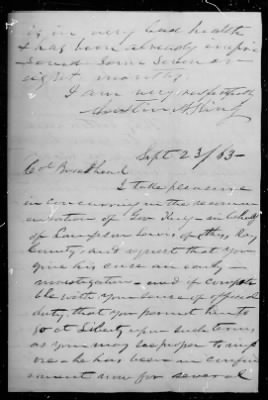 is in very bad health
& has been already impri-
soned some seven or
eight months.
I am very respectfully
Austin A King
Sept 23/63-
Col Broadhead
I take pleasure
in concurring in the recom
endation of Gov King - in behalf
of Lewis, of Ray
County, and request that you
give his case an early
investigation - and if compati
ble with your sense of official
duty, that you permit him to
go at Liberty upon such terms
as you may see proper to imp
ose - he has been in confine
ment now for several